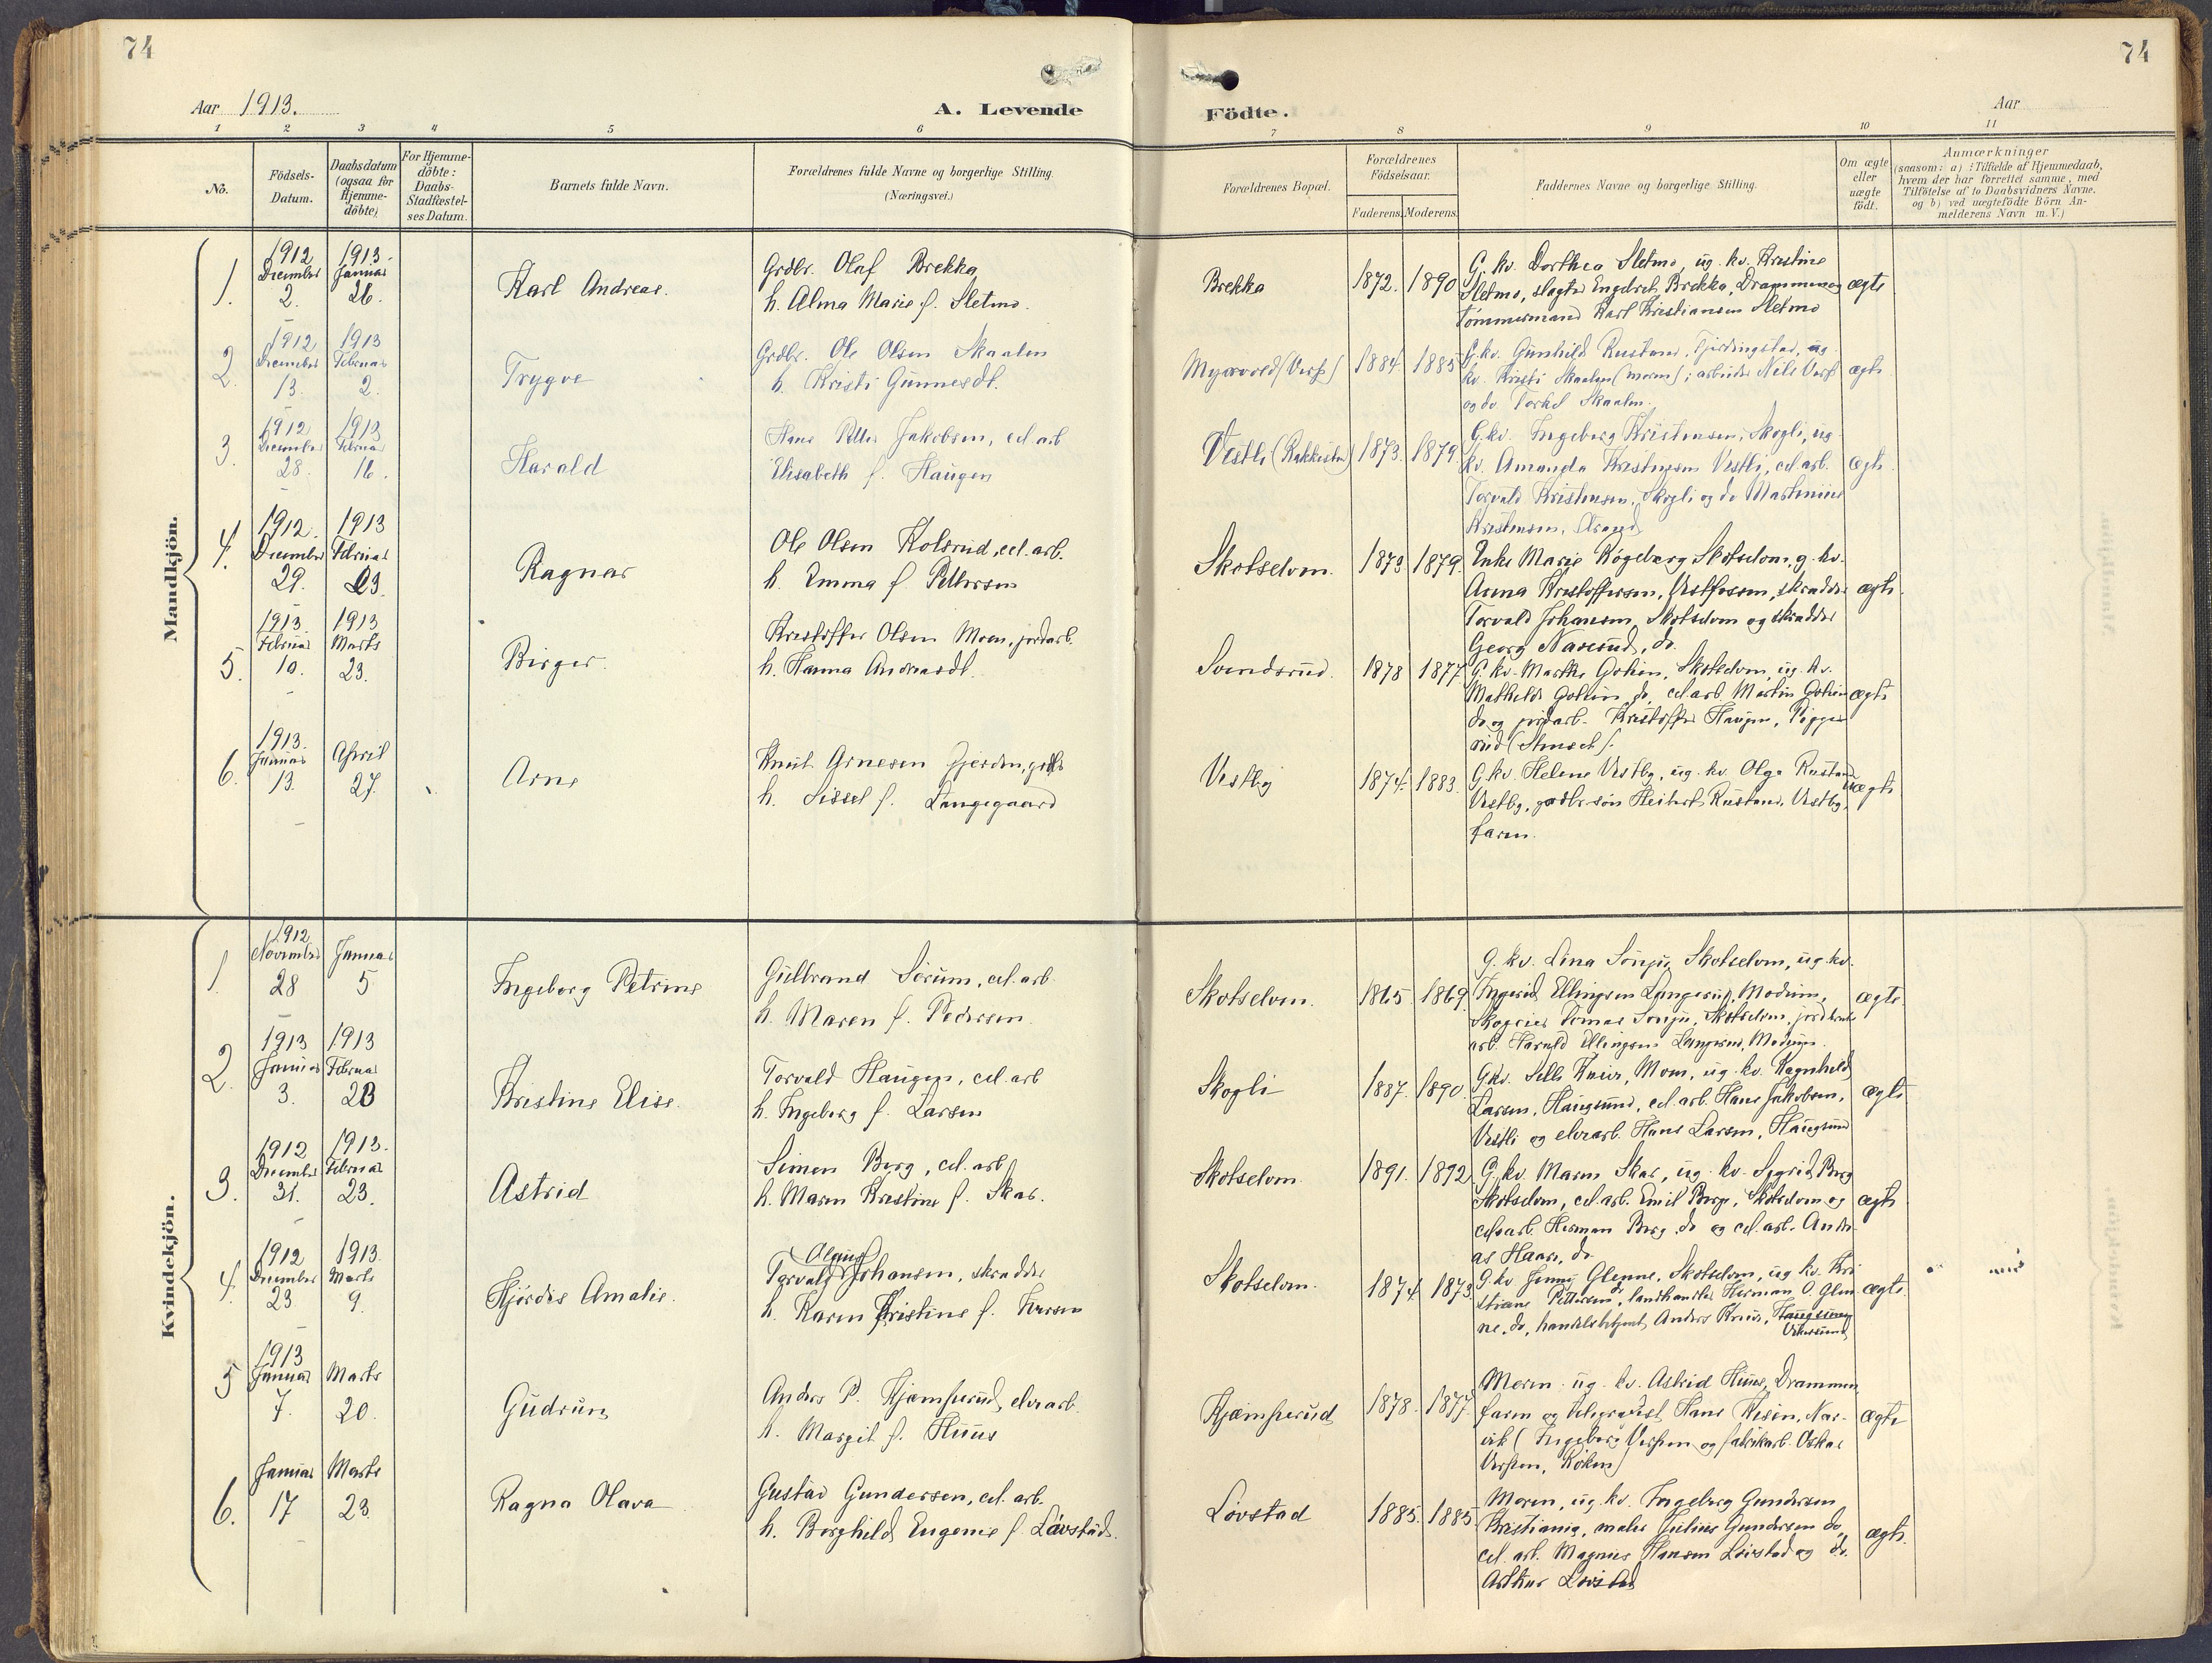 74
74
Aar 1913.
A. Levende
Födte.
Aar
1 2 3 4 5 6 7 8 9 10 11
No.
Födsels-
Datum.
Daabsdatum
(ogsaa for
Hjemme-
döbte)
For Hjemme-
döbte:
Daabs-
Stadfæstel-
ses Datum.
Barnets fulde Navn.
Forældrenes fulde Navne og borgerlige Stilling.
(Næringsvei.)
Forældrenes Bopæl.
Forældrenes
Födselsaar.
Faderens. Moderens.
Faddernes Navne og borgerlige Stilling.
Om ægte
eller
uægte
födt.
Anmærkninger
(saasom: a) i Tilfælde af Hjemmedaab,
hvem der har forrettet samme, med
Tilföielse af to Daabsvidners Navne.
og b) ved uægtefödte Börn An-
melderens Navn m. V.)
Mandkjön.
1.
1912
December
2.
1913.
Januar
26.
Karl Andreas.
Grdbr. Olaf Brekka
h. Alma Marie f. Sletmo.
Brekka
1872. 1890
G. kv. Dorthea Sletmo, ug. kv. Kristine
Sletmo, slagter Engebret Brekka, Drammen og
tömmermand Karl Kristiansen Sletmo
ægte
2.
1912
December
13.
1913
Februar
2.
Trygve
Grdbr. Ole Olsen Skaalen
h. Kristi Gunnersdt.
1884. 1885
G. kv. Gunhild Rustand, ug.
kv. Kristi Skaalen (moren), arbeider Nils
og do Torkel Skaalen.
ægte
3.
1912
December
28.
1913
Februar
16.
Harald
Hans Petter Jakobsen, cel. arb
Elisabeth f. Haugen
Vestli
1873. 1879.
G. kv. Ingeborg Kristensen, Skogli, ug
kv. Amanda Kristensen Vestli, cel. arb.
Torvald Kristensen, Skogli og do Martinius
Kristensen,
ægte
4.
1912.
December
29.
1913
Februar
23.
Ragnar
Ole Olsen Kolsrud, cel. arb.
h. Emma f. Pettersen
Skotselven.
1873 1879.
Enke Marie Kogeberg Skotselven, g. kv.
Anna Kristoffersen, Vestfossen, skrædder
Torvald Johansen, Skotselven og skrædder
Georg Narverud, do.
ægte
5.
1913.
Februar
10.
1913
Marts
23.
Birger.
Kristoffer Olsen Moen, jordarb.
h. Hanna Andreasdt.
Svendsrud.
1878 1877
G. kv. Marthe Gotien, Skotselven, ug. kv.
Mathilde Gotien do, cel. arb Martin Gotien
do og jordarb. Kristoffer Haugen,
ægte
6.
1913.
Januar
13.
April
27.
Arne
Knut Arnesen Gjerden,
h. Sissel f. Langegaard
Vestby
1874. 1883.
G. kv. Helene Vestby, ug. kv. Olga Rustand
Vestby, grdbr. søn Herbert Rustand, Vestby,
faren.
ægte
Kvindekjön.
1
1912
November
28
Januar
5
Ingeborg Petrine
Gulbrand Sörum, cel. arb.
h. Maren f. Pedersen.
Skotselven.
1865. 1869
G. kv. Lina Sonju, Skotselven, ug. kv.
Ingerid Ellingsen Langerud, Modum,
Tomas Sonju, Skotselven,
arb. Harald Ellingsen Langerud, Modum.
ægte
2.
1913
Januar
3.
1913
Februar
23
Kristine Elise.
Torvald Haugen, cel. arb
h. Ingeborg f. Larsen
Skogli
1887. 1890.
G. kv. Moen, ug. kv. Ragnhild
Larsen, Haugsund, cel. arb. Hans Jakobsen,
Vestli og elvearb. Hans Larsen, Haugsund
ægte
3.
1912
December
31.
1913.
Februar
23.
Astrid
Simen Berg, cel. arb
h. Maren Kristine f. Skar.
Skotselven
1891. 1892
G. kv. Maren Skar, ug. kv. Sigrid Berg
Skotselven, cel. arb. Emil Berg, Skotselven og
cel. arb. Herman Berg do og cel. arb. Andre-
as Haare, do.
ægte
4.
1912
December
23.
1913.
Marts
9.
Hjördis Amalie.
August
Torvald Johansen, skrædder
h. Karen Kristine f. Iversen
Skotselven.
1874 1873.
G. kv Jenny Glenne, Skotselven, ug. kv. Kri
stiane Pettersen do, landhandler Herman O. Glen-
ne, do, handelsbetjent Anders Knive, Haugsund
Vikersund
ægte.
5
1913
Januar
7.
Marts
20.
Gudrun
Anders P. Kjemperud, elvearb.
h. Margit f. Huus
Kjemperud
1878. 1877.
Moren, ug. kv. Astrid Huus, Drammen
faren og telegrafist Hans Risen, Nar-
vik (Ingeborg Verpen og fabrikarb. Oskar
Verpen, Röken)
ægte
6.
Januar
17
Marts
23.
Ragna Olava
Gustav Gundersen, cel. arb.
h. Borghild Eugenie f. Lövstad.
Lövstad
1885. 1885
Moren, ug. kv. Ingeborg Gundersen
Kristiania, maler Julius Gundersen do,
cel. arb. Magnus Hansen Lövstad og do.
Arthur Lövstad
ægte.